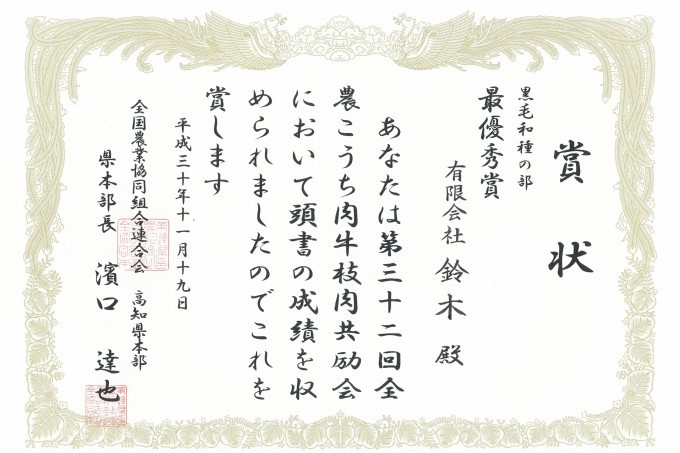 賞状
黒毛和種の部
最優秀賞
有限会社 鈴木 殿
あなたは第三十二回全
農こうち肉牛枝肉共励会
において頭書の成績を収
められましたのでこれを
賞します
平成三十年十一月十九日
全国農業協同組合連合会 高知県本部
県本部長 濱口 達也